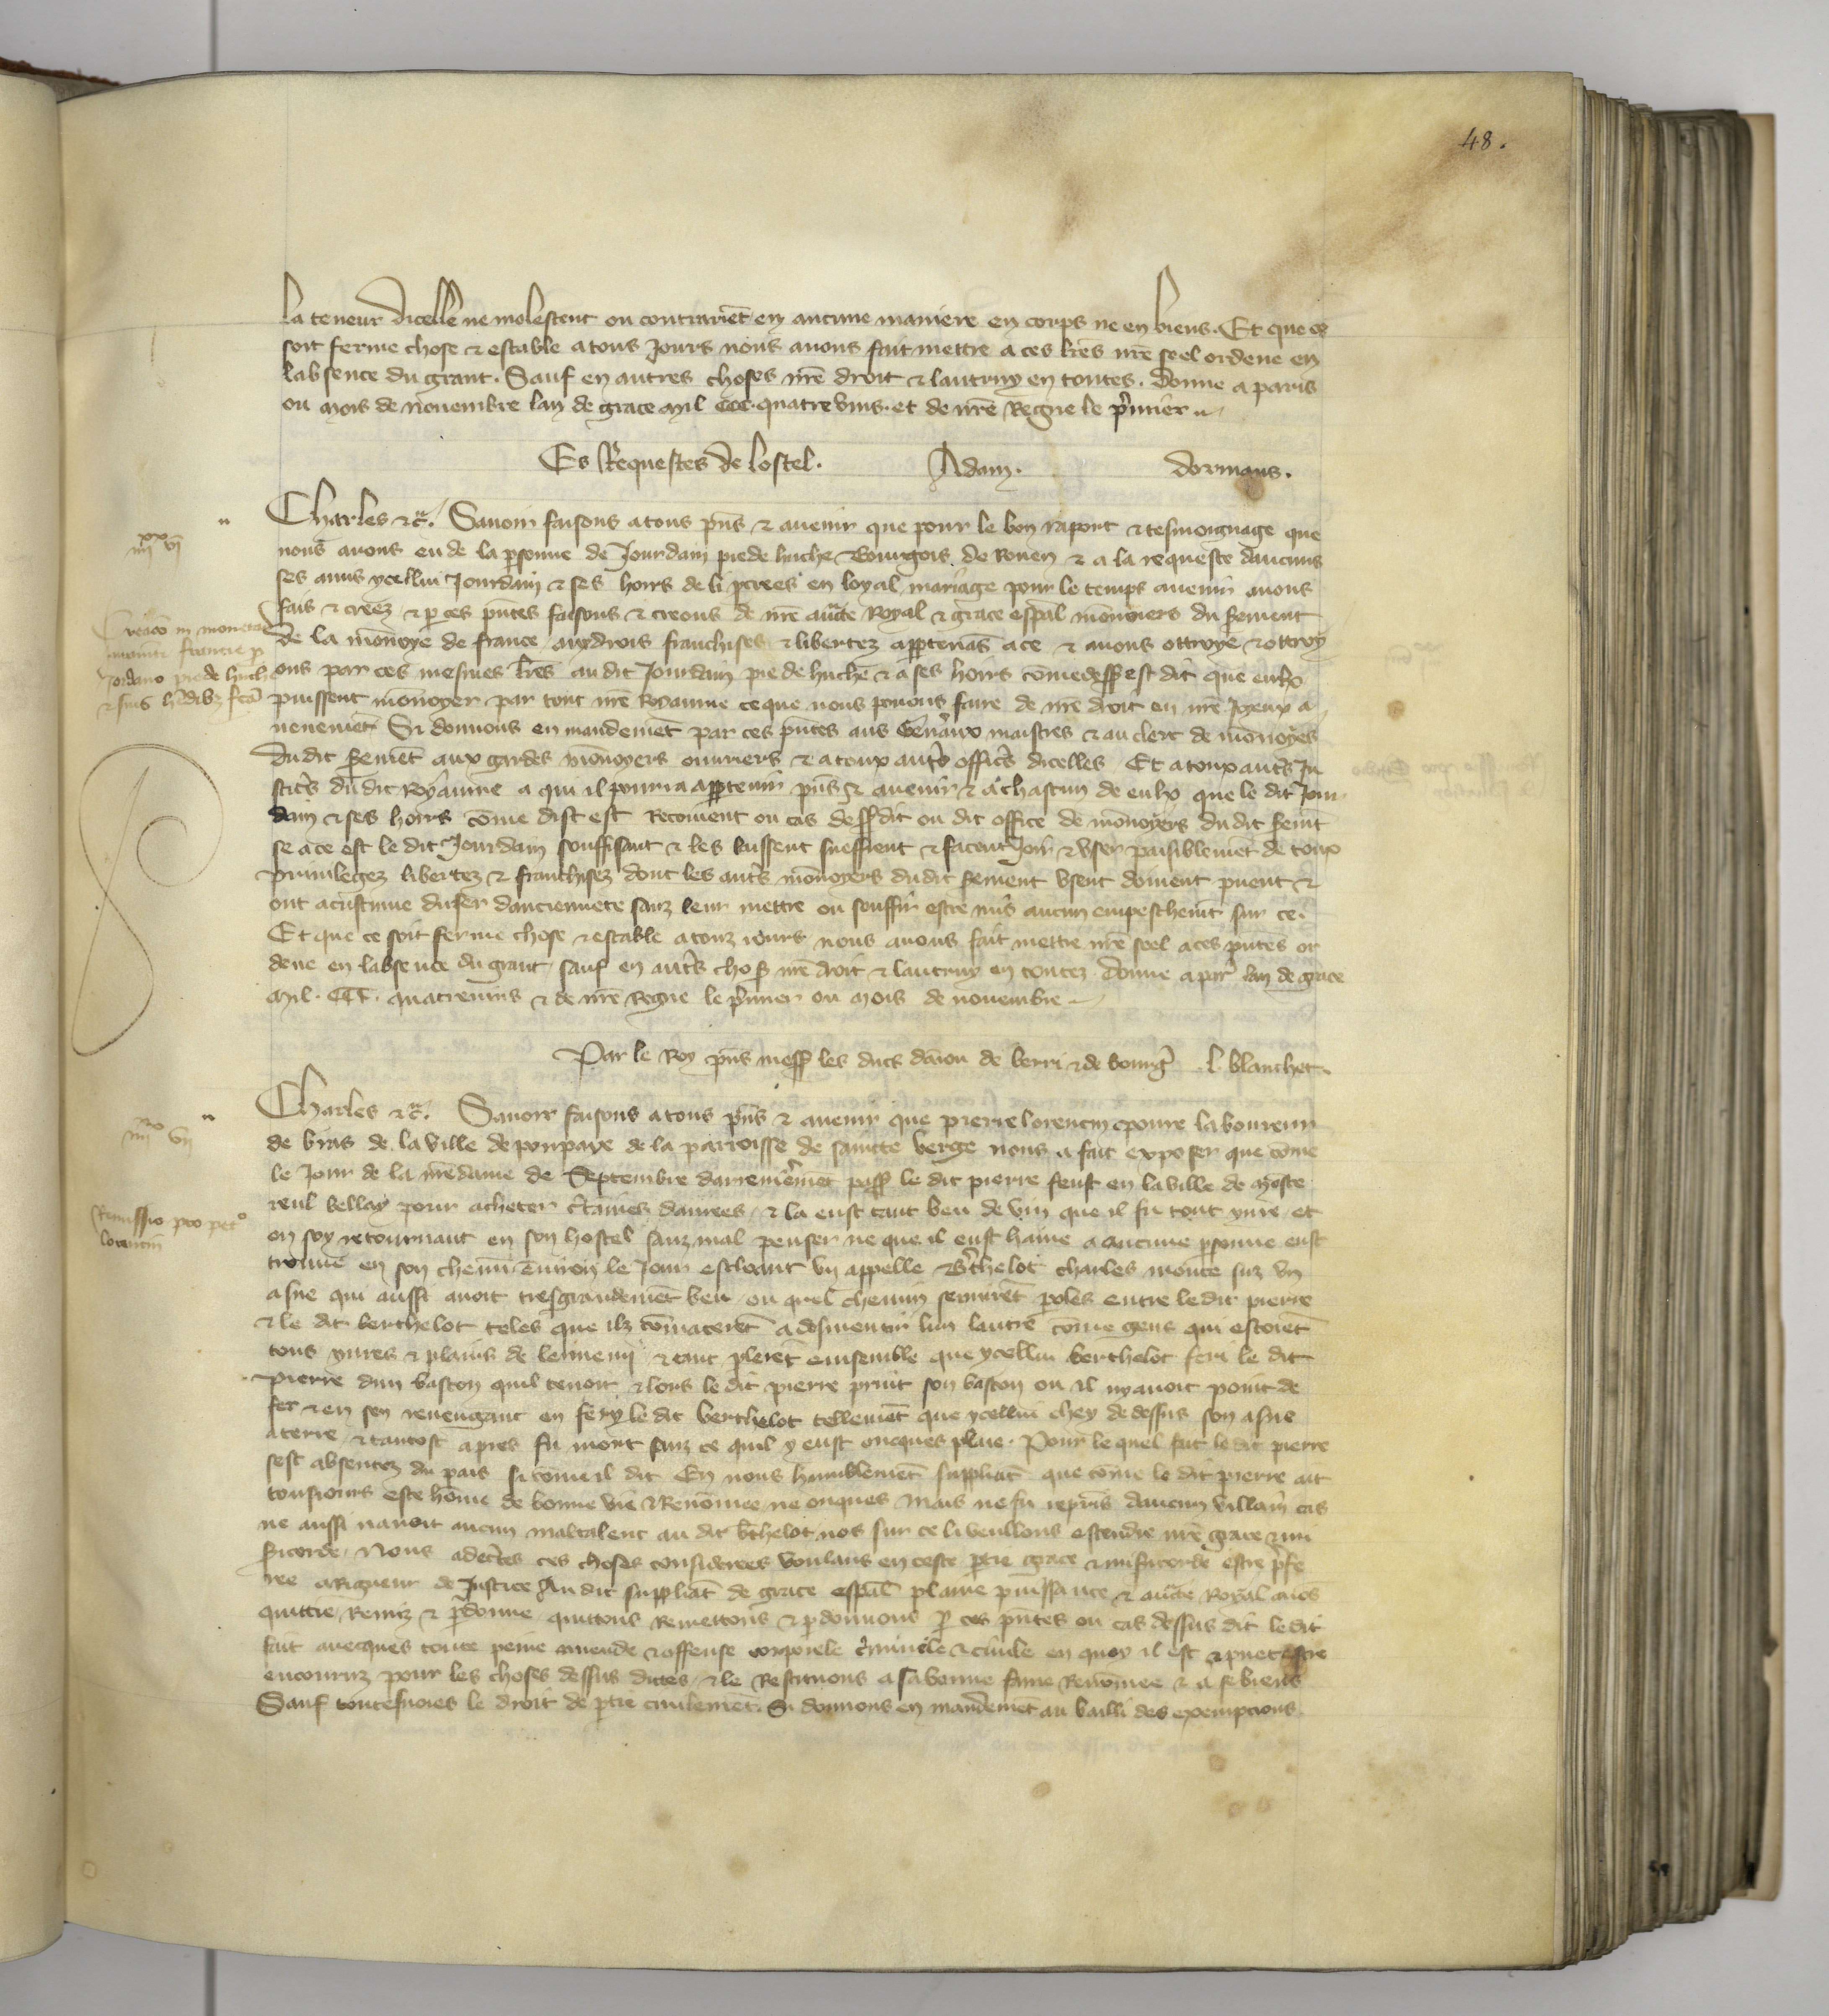 48.
la teneur dicelle ne molestent ou contrarièt en aucune maniere en corps ne en biens. Et que ce
soit ferme chose & estable a tous Jours nous auons fait mettre a ces lr̄es nr̄e seel ordene en
labsence du grant. Sauf en autres choses nr̄e droit & lautruy en toutes. Donne a paris
ou mois de nouembre lan de grace mil CCC. quatre vins. et de nr̄e Regne le p̄mier
Es Requestes de lostel. Adam. dormans.
Charles &c̄. Sauoir faisons a tous p̄ns & auenir que pour le bon raport & tesmoignage que
nous auons eu de la p̄sonne de Jourdain piedeluche Bourgois de Rouen & a la requeste daucuns
ses amis ycellui Jourdain & ses hoirs de li p̄crees en loyal mariage pour le temps auenir auons
fais & creez & p̄ ces p̄ntes faisons & creons de nr̄e auc̄te Royal & grace esp̄al mōnoiers du s̄ement
de la mōnoye de france, aux drois franchises & libertez app̄tenās a ce & auons ottroye & ottroy
ons par ces mesmes lr̄es au dit Jourdain pie de huche & a ses hoirs cōme dess̄ est dit que eulx
puissent mōnoyer par tout nr̄e Royaume ce que nous pouons faire de nr̄e droit en nr̄e Joyeux a
uenemēt Si donnons en mandemēt par ces p̄ntes aus Gen̄aux maistres & au clerc de mōnoyes
du dit s̄emēt aux gardes mōnoyers ouuriers & a toux aut̄s offic̄s dicelles Et a toux aut̄s Ju
stic̄s du dit Royaume a qui il pourra app̄tenir p̄ns & auenir & a chascun de eulx que le dit Jour
dain & ses hoirs cōme dist est Recoiuent ou cas dess̄dit ou dit office de mōnoyers du dit s̄emt
se a ce est le dit Jourdain souffisant & les laissent sueffrent & facent Joir & vser paisiblemēt de toux
priuileges libertez & franchisez dont les aut̄s mōnoyers du dit s̄ement vsent doiuent puent &
ont acustume duser danciennete sanz leur mettre ou souffrir estre mis aucun empeschemt sur ce.
Et que ce soit ferme chose & estable a touz iours nous auons fait mettre nr̄e seel a ces p̄ntes or
dene en labsence du grant, sauf en aut̄s chos̄ nr̄e droit & lautruy en toutez. Donne a par̄ lan de grace
mil. CCC. quatreuins & de nr̄e Regne le p̄mier ou mois de nouembre
Par le Roy p̄ns mess̄ les ducs daniou de berri & de bourḡ. L. blanchet.
Charles &c̄. Sauoir faisons a tous p̄ns & auenir que pierre lorencin poure laboureur
de bras de la ville de pompaye de la parroisse de saincte verge nous a fait exposer que cōme
le Jour de la nr̄e dame de Septembre darrenieremēt pass̄ le dit pierre feust en la ville de moste
reul bellay pour acheter c̄taines danrees & la eust tant beu de vin que il fu tout yure et
en soy retournant en son hostel sanz mal penser ne que il eust haine a aucune p̄sonne eust
trouue en son chemin enuiron le Jour esclosant vn appelle B̄thelot charles monte suz vn
asne qui aussi auoit tresgrandemēt beu ou quel chemin semeurēt p̄oles entre le dit pierre
& le dit berthelot teles que ilz cōmacerēt a desmentir lun lautre cōme gens qui estoiēt
tous yures & plains de lennemi & tant p̄lerēt emsemble que ycellui berthelot feri le dit
pierre dun baston quil tenoit & lors le dit pierre print son baston ou il ny auoit point de
fer & en soy reuengant en fery le dit berthelot tellemēt que ycellui chey de dessus son asne
a terre & tantost apres fu mort sanz ce quil y eust oncques plaie. Pour le quel fait le dit pierre
sest absentez du pais si cōme il dit En nous humblemēt suppliāt que cōme le dit pierre ait
tousiours este hōme de bonne vie & Renōmee ne onques mais ne fu repris daucun villain cas
ne aussi nauoit aucun maltalent au dit b̄thelot nos sur ce li veullons estendre nr̄e grace & mi
s̄icorde. Nous adec̄tes ces choses considerees voulans en ceste p̄tie grace & mis̄icorde estre p̄fe
ree a Rigueur de Justice Au dit suppliāt de grace esp̄al plaine puissance & auc̄te Royal auōs
quittie Remiz & p̄donne quittons Remettons & p̄donnons p̄ ces p̄ntes ou cas dessus dit le dit
fait auecques toute peine amende & offense corporele c̄minele & ciuile en quoy il est & puet estre
encouruz pour les choses dessus dictes & le Restituons a sa bonne fame Renōmee & a se biens
Sauf toutesuoies le droit de p̄tie ciuilemēt. Si donnons en mandemēt au bailli des exempcions
iiiixx vi
Creaco in monetar
monete francie p
Jordano pie de huche
& suis h̄edibz fca
iiiixx vii
Remissio pro pet°
lorentin